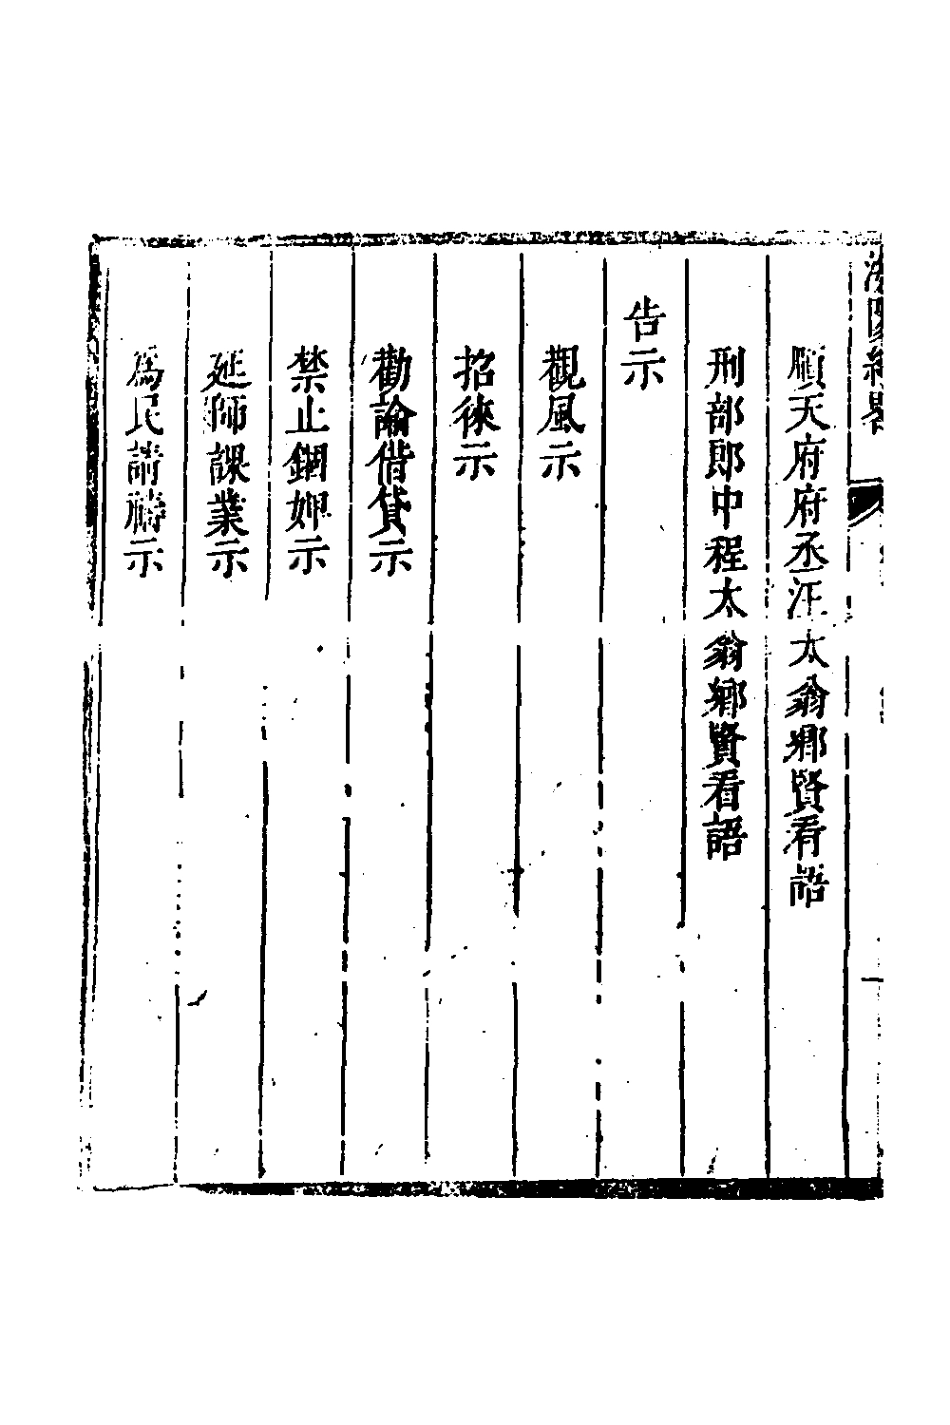 順天府府丞汪太翁鄉賢看語
刑部郎中程太翁鄉賢看語
告示
觀風示
招徠示
勸諭借貸示
禁止錮婢示
延師課業示
為民請禱示